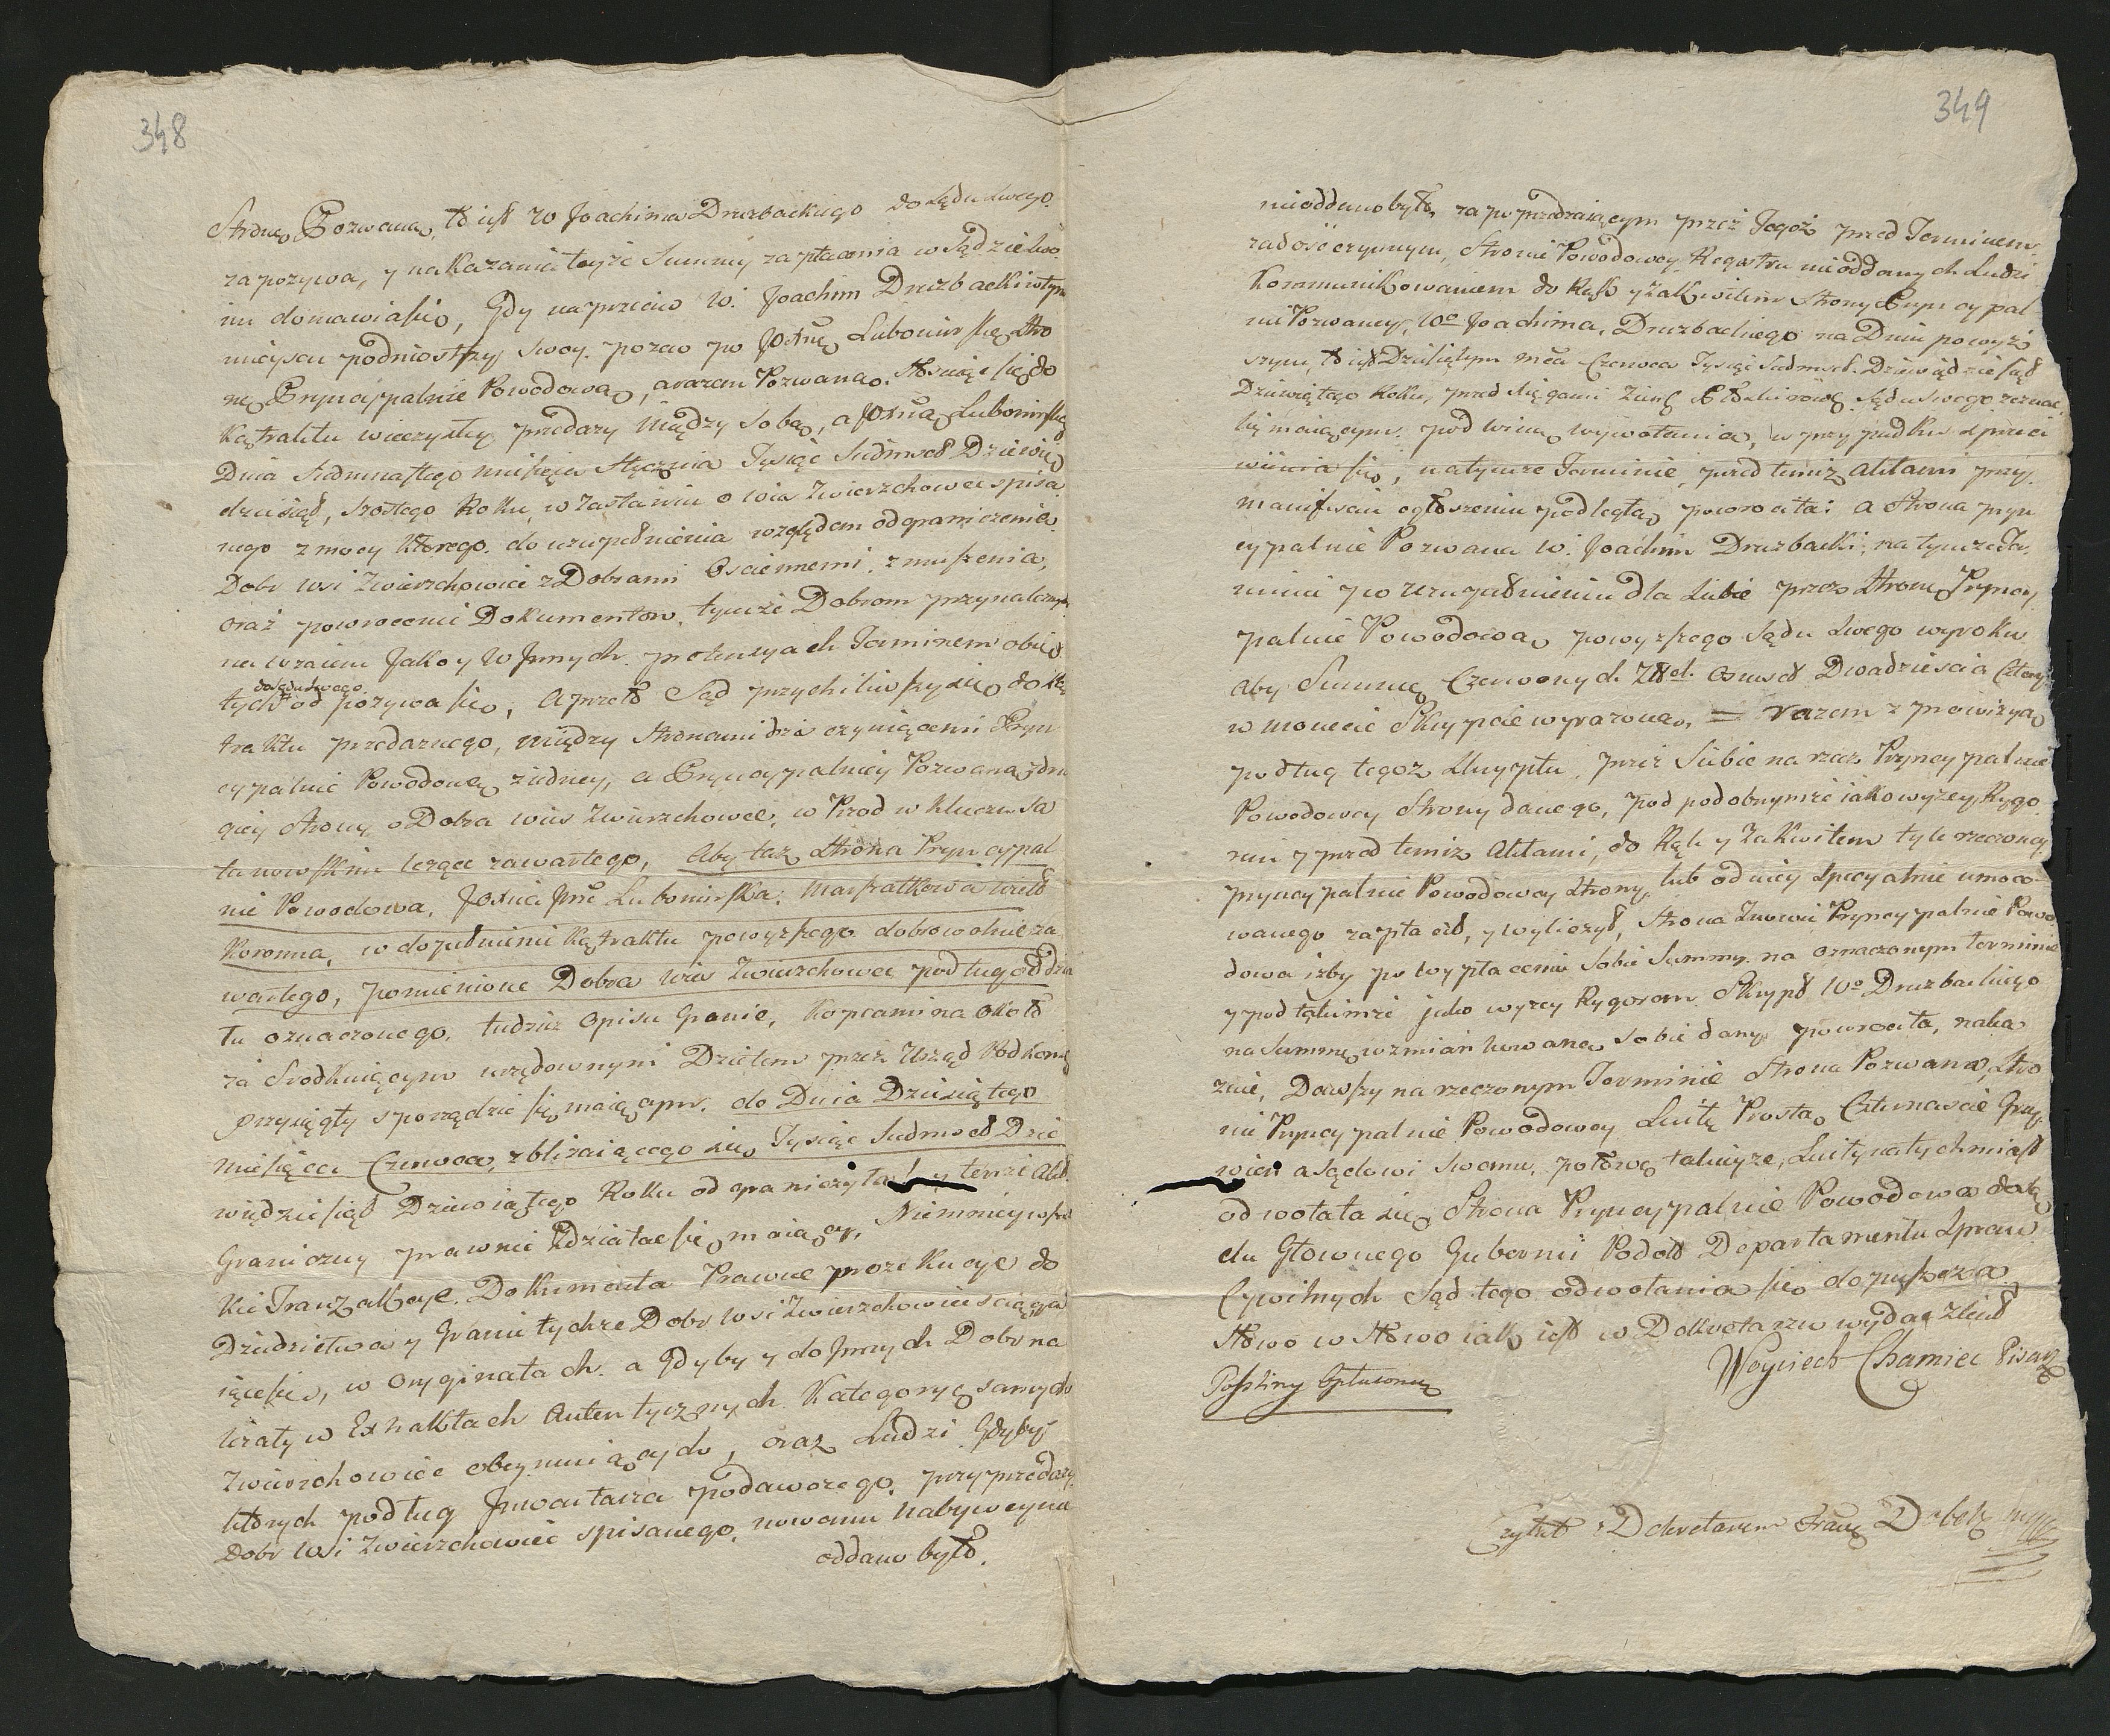 348
Stronę Pozwaną, to iest W Joachima Druzbackiego do Sądu swego
zapozywa, y nakazania teyże Summy zapłacenia w Sądzie Swo
im domawia się, Gdy naprzeciw W. Joachim Druzbacki w tym
mieyscu podniosłszy swoy pozew po JOXnę Lubomirską Stro
nę Pryncypalnie Powodową, a razem Pozwaną. Stosuiąc się do
Kątraktu wieczystey przedaży między sobą, a JOXną Lubomirską
Dnia Siedmnastego miesięca Stycznia Tysiąc Siedmset Dziewię
dziesiąt, szostego Roku, w Zasławiu o wieś Zwierzchowce spisa
nego z mocy ktorego do uzupełnienia względem odgraniczenia
Dobr wsi Zwierzchowiec z Dobrami Osciennemi zmuszenia,
oraz powrocenie Dokumentow, tymże Dobrom przynależnych
na wzaiem Jako y W Jnnych pretensyach Terminem obię
tych do sądu swego od pozywa się, A przeto Sąd przychiliwszy się do Ką
traktu przedażnego, między Stronami dziś czyniącemi Pryn
cypalnie Powodową z iedney, a Pryncypalniey Pozwaną z dru
giey Strony o Dobra wieś Zwierzchowce, w Przod w Kluczu Sa
tanowskim leżące zawartego, Aby taż Strona Pryncypal
nie Powodowa, JOXna Jmć Lubomirska, Marszałkowa Wiel
Koronna, w dopełnienie Kątraktu powyższego dobrowolnie za
wartego, pomienione Dobra wieś Zwierzchowce podług oddzia
łu oznaczonego, tudzież Opisu Granic, Kopcami na około
za Srodkuiącym urzędownym Dziełem przez Urząd Podkomo
przysięgły sporządzić się maiącym, do Dnia Dziesiątego
Miesięca Czerwca, zbliżaiącego się, Tysiąc Siedmset Dzie
więdziesiąt Dziewiątego Roku od graniczyła y tenże Akt
Graniczny prawnie zdziałać się maiący, Niemniey wszel
kie Tranzakcye, Dokumenta Prawne prozekucye do
Dziedzictwa y Granic tychże Dobr wsi Zwierzchowiec sciąga
iące się, w Oryginałach, a Gdyby y do Jnnych Dobr na
leżały w Extraktach Autentycznych Kategoryę samych
Zwierzchowiec obeymuiących, oraz Ludzi Gdyby
ktorych podług Jnwentarza podawczego, przy przedaży
Dobr Wsi Zwierzchowiec spisanego, nowemu nabywcy nie
oddano było.
349
nieoddano było, za poprzedzaiącym przez Tegoż przed Terminem
zadość czynnym, Stronie Powodowey Regestru nieoddanych Ludzi
Kommunikowaniem do Rąk y za Kwitem Strony Pryncypal
nie Pozwaney, Wo Joachima Druzbackiego na Dniu powyż
szym, to iest Dziesiątym mca Czerwca Tysiąc Siedmset Dziewiędziesiąt
Dziewiątego Roku, przed Xięgami Ziems Płoskirowę Sądu swego zeznać
się maiącym, pod winą wywołania, w przypadku sprzeci
wienia się, na tymże Terminie, przed temiż Aktami przy
manifescie ogłoszeniu podległą powrociła: a Strona pryn
cypalnie Pozwana W. Joachim Druzbacki, na tymże Ter
minie y po uzupełnieniu dla Siebie przez Stronę Pryncy
palnie Powodową powyższego Sądu swego wyroku
aby Summę Czerwonych Złtch Osmset Dwadziescia Cztery
w monecie Skrypcie wyrażoną, = razem z prowizyą
podług tegoż Skryptu, przez Siebie na rzecz Pryncypalnie
Powodowey Strony danego, pod podobnymże iako wyżey Rygo
rem y przed temiż Aktami, do Rąk y za Kwitem tyle rzeczoney
pryncypalnie Powodowey Strony, lub od niey specyalnie umoco
wanego zapłacił, y wyliczył, Strona Znowu Pryncypalnie Powo
dowa izby po wypłaceniu Sobie Summy na oznaczonym terminie
y pod takimże jako wyżey Rygorem Skrypt Wo Druzbackiego
na Summę wzmiankowaną sobie dany powrociła, naka
zuie, Dawszy na rzeczonym Terminie Strona Pozwana, Stro
nie Pryncypalnie Powodowey Luitę Prostą Czternascie Grzy
wien a sądowi swemu, połowę takieyże, Luity natychmiast
odwołała się Strona Pryncypalnie Powodowa do Są
du Głownego Gubernii Podol Departamentu Spraw
Cywilnych Sąd tego odwołania się dopuszcza
Słowo w Słowo iak iest w Dekretarzu wydać zlecił
Woyciech Chamiec Pisarz
Poszliny Opłacono
Czytał z Dekretarzem Franc